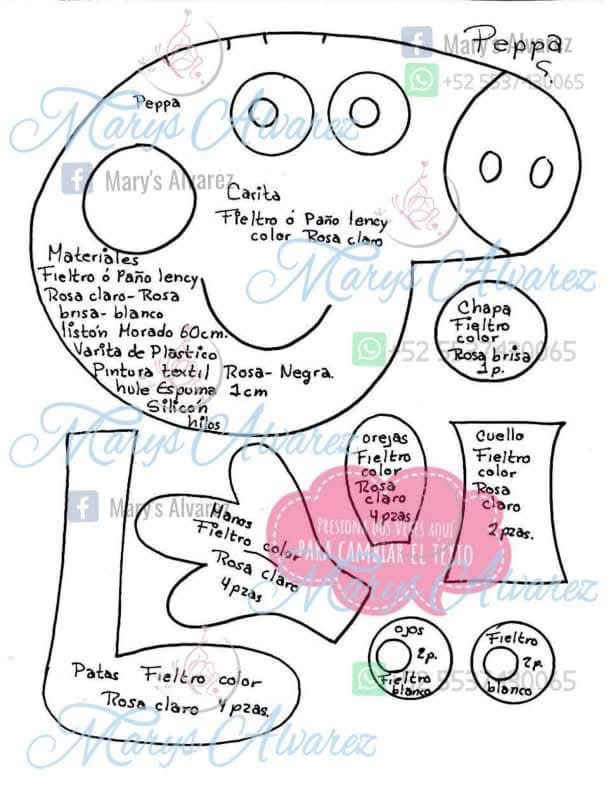 Peppa
S.
Mary's Alvarez
+52 5537430065
Peppa
Marys Alvarez
Mary's Alvarez
Carita
Fieltro ó Paño lency
color Rosa claro
Marys Alvarez
Materiales
Fieltro ó Paño lency
Rosa claro - Rosa
brisa - blanco
listón Morado 60cm.
Varita de Plastico
Pintura textil Rosa - Negra.
hule Espuma 1cm
Silicón
hilos
Chapa
Fieltro
color
Rosa brisa
1p.
+52 5537430065
Marys Alvarez
orejas
Fieltro
color
Rosa
claro
4 pzas
cuello
Fieltro
color
Rosa
claro
2 pzas.
Mary's Alvarez
Manos
Fieltro color
Rosa claro
4 pzas
Presiona dos veces aquí
para cambiar el texto
Marys Alvarez
ojos
2p.
Fieltro
blanco
Fieltro
2p.
blanco
5537430065
Patas Fieltro color
Rosa claro 4 pzas.
Marys Alvarez